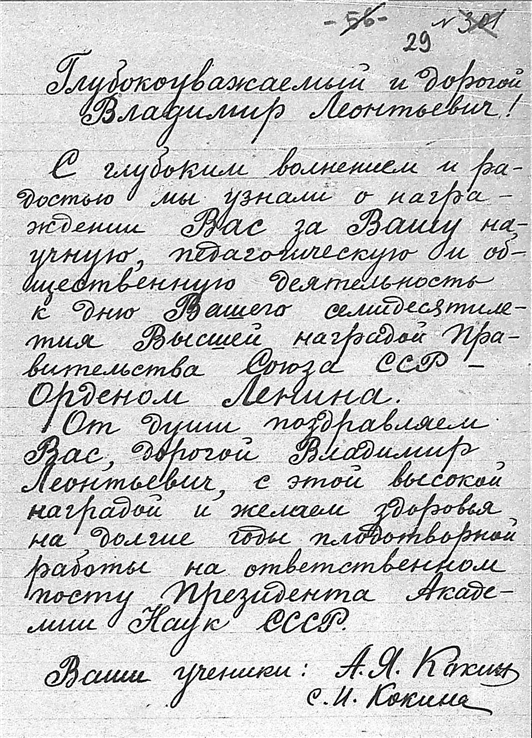 - 56 - № 301
29
Глубокоуважаемый и дорогой
Владимир Леонтьевич!
С глубоким волнением и ра-
достью мы узнали о награ-
ждении Вас за Вашу на-
учную, педагогическую и об-
щественную деятельность
к дню Вашего семидесятиле-
тия Высшей наградой Пра-
вительства Союза ССР –
Орденом Ленина.
От души поздравляем
Вас, дорогой Владимир
Леонтьевич, с этой высокой
наградой и желаем здоровья
на долгие годы плодотворной
работы на ответственном
посту Президента Акаде-
мии Наук СССР.
Ваши ученики: А.Я. Кокин
С.И. Кокина